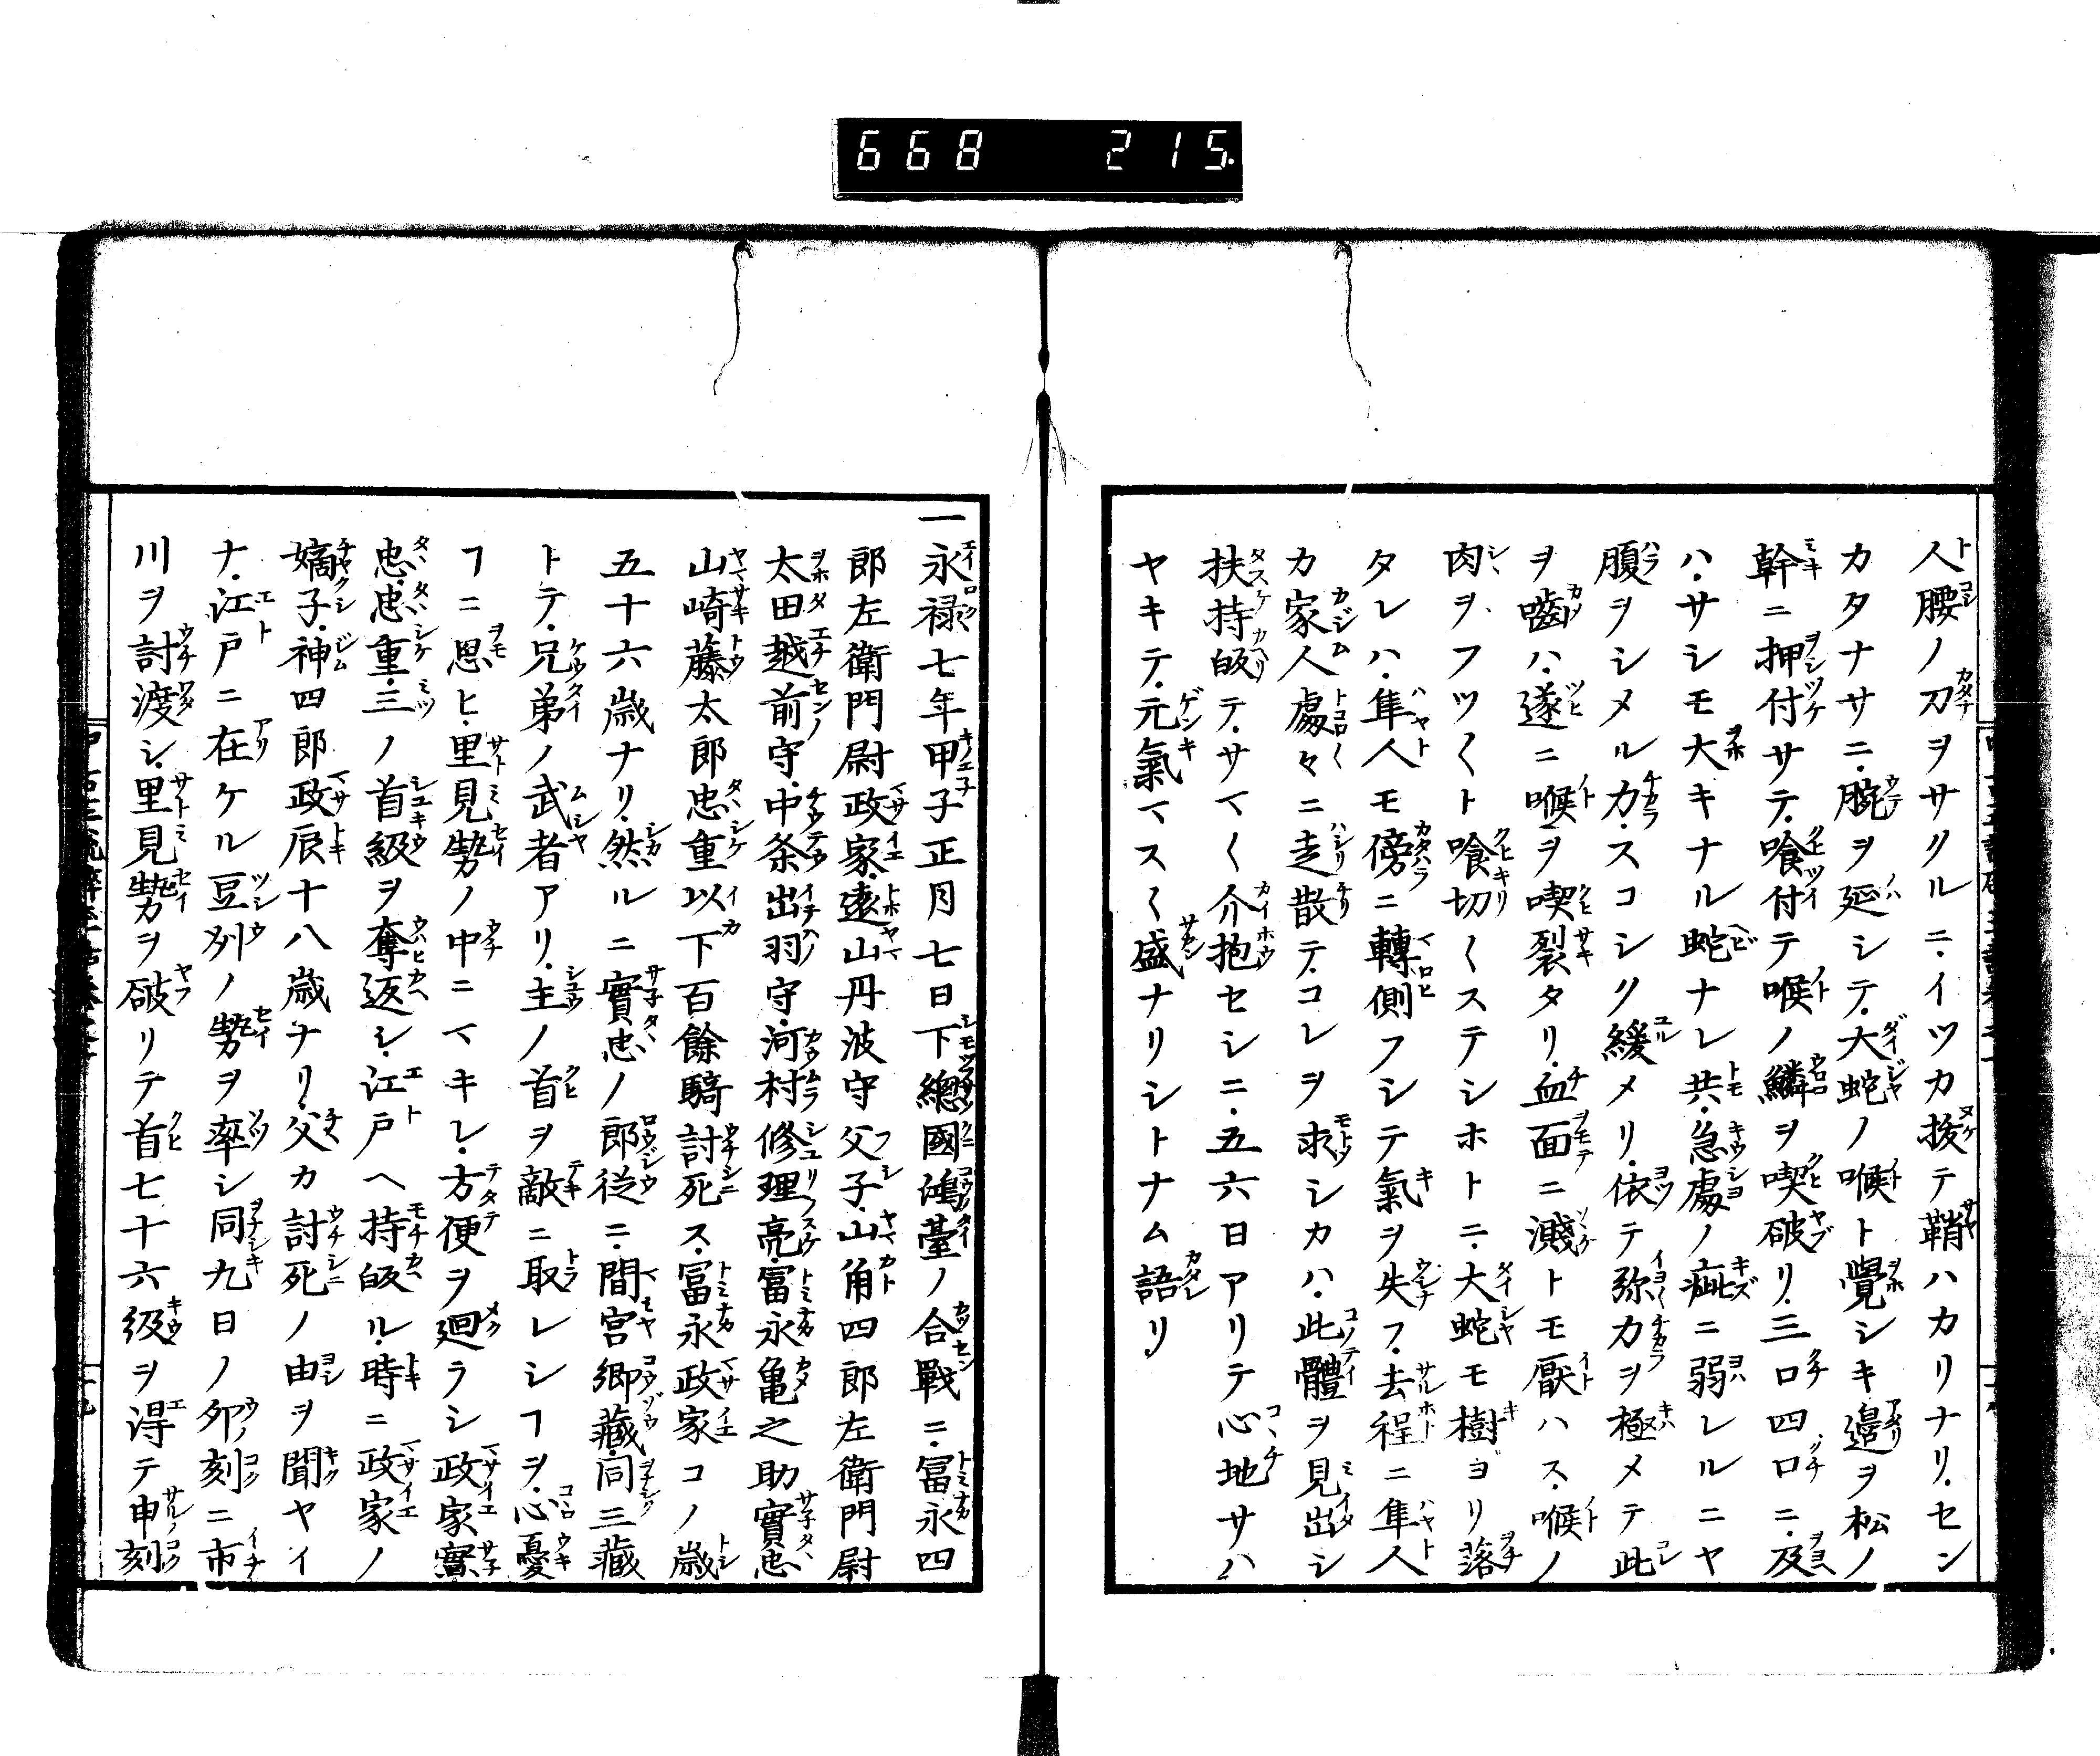 668 215.
人腰ノ刀ヲサクルニ、イツカ抜テ鞘ハカリナリ、セン
カタナサニ、腕ヲ延シテ、大蛇ノ喉ト覺シキ邉ヲ松ノ
幹ニ押付サテ、喰付テ喉ノ鱗ヲ喫破リ、三口四口ニ、及
ハ、サシモ大キナル蛇ナレ共、急處ノ疵ニ弱レルニヤ
腹ヲシメル力、スコシク緩メリ、依テ弥力ヲ極メテ此
ヲ嚙ハ、遂ニ喉ヲ喫裂タリ、血面ニ濺トモ厭ハス、喉ノ
肉ヲフツ〱ト喰切〱ステシホトニ、大蛇モ樹ヨリ落
タレハ、隼人モ傍ニ轉側フシテ氣ヲ失フ、去程ニ隼人
カ家人處々ニ走散テ、コレヲ求シカハ、此體ヲ見出シ
扶持皈テ、サマ〱介抱セシニ、五六日アリテ心地サハ
ヤキテ、元氣マス〱盛ナリシトナム語リ
一永禄七年甲子正月七日下總國鴻臺ノ合戰ニ、冨永四
郎左衛門尉政家、遠山丹波守父子、山角四郎左衛門尉
太田越前守、中条出羽守、河村修理亮、冨永亀之助實忠
山崎藤太郎忠重以下百餘騎討死ス、冨永政家コノ歳
五十六歳ナリ、然ルニ實忠ノ郎従ニ、間宮郷藏、同三藏
トテ、兄弟ノ武者アリ、主ノ首ヲ敵ニ取レシフヲ、心憂
フニ思ヒ、里見勢ノ中ニマキレ、方便ヲ廻ラシ政家實
忠、忠重、三ノ首級ヲ奪返シ、江戸ヘ持皈ル、時ニ政家ノ
嫡子、神四郎政辰十八歳ナリ、父カ討死ノ由ヲ聞ヤイ
ナ、江戸ニ在ケル豆列ノ勢ヲ率シ同九日ノ夘刻ニ市
川ヲ討渡シ、里見勢ヲ破リテ首七十六級ヲ淂テ申刻